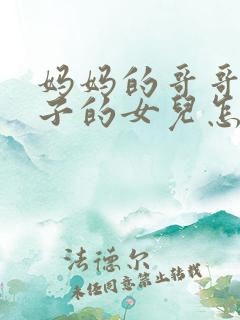 妈妈的哥哥
子的女兒怎
法德尔
未经同意禁止转载